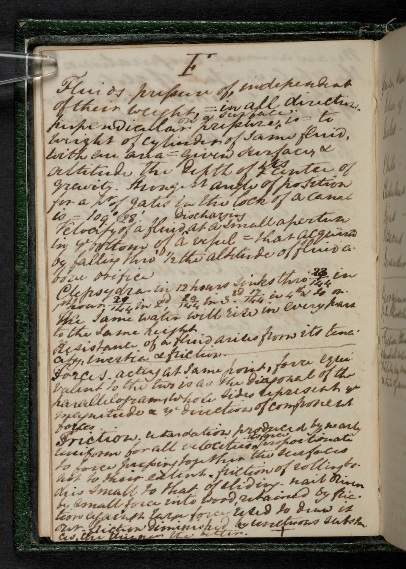 F
Fluids pressure of, independent
of their weight, = in all direction.
perpendicular pressure, on a surface, is = to
weight of cylinder of same fluid,
with an area = given surface, &
altitude the depth of its center of
gravity. Hung: & angle of position
for a pr of gates in the lock of a canal
is = 109° 28'.
Velocity of a fluid discharg'd at a small aperture
in ye bottom of a vessel = that acquired
by falling thro' ½ the altitude of fluid a-
bove orifice
Clepsydra in 12 hours sinks thro' 23/144 in
1st hour 21/144 in 2d 19/144 in 3d 17/144 in 4th & so on
The same water will rise in every part
to the same height
Resistance of a fluid arises from its tena-
city, inertia & friction.
Forces. acting at same point, force equi
valent to the two is as the diagonal of the
parallelogram, whose sides represent ye
magnitude & ye direction of component
forces
Friction, retardation produced by nearly
uniform for all velocities, proportionate
to force pressing together the surfaces
not to their extent, friction of rolling bo-
dies small to that of sliding. nail driven
by small force into wood, retained by fric-
tion against large force used to draw it
out. friction diminished by unctuous substan-
ces, the thinner the better.